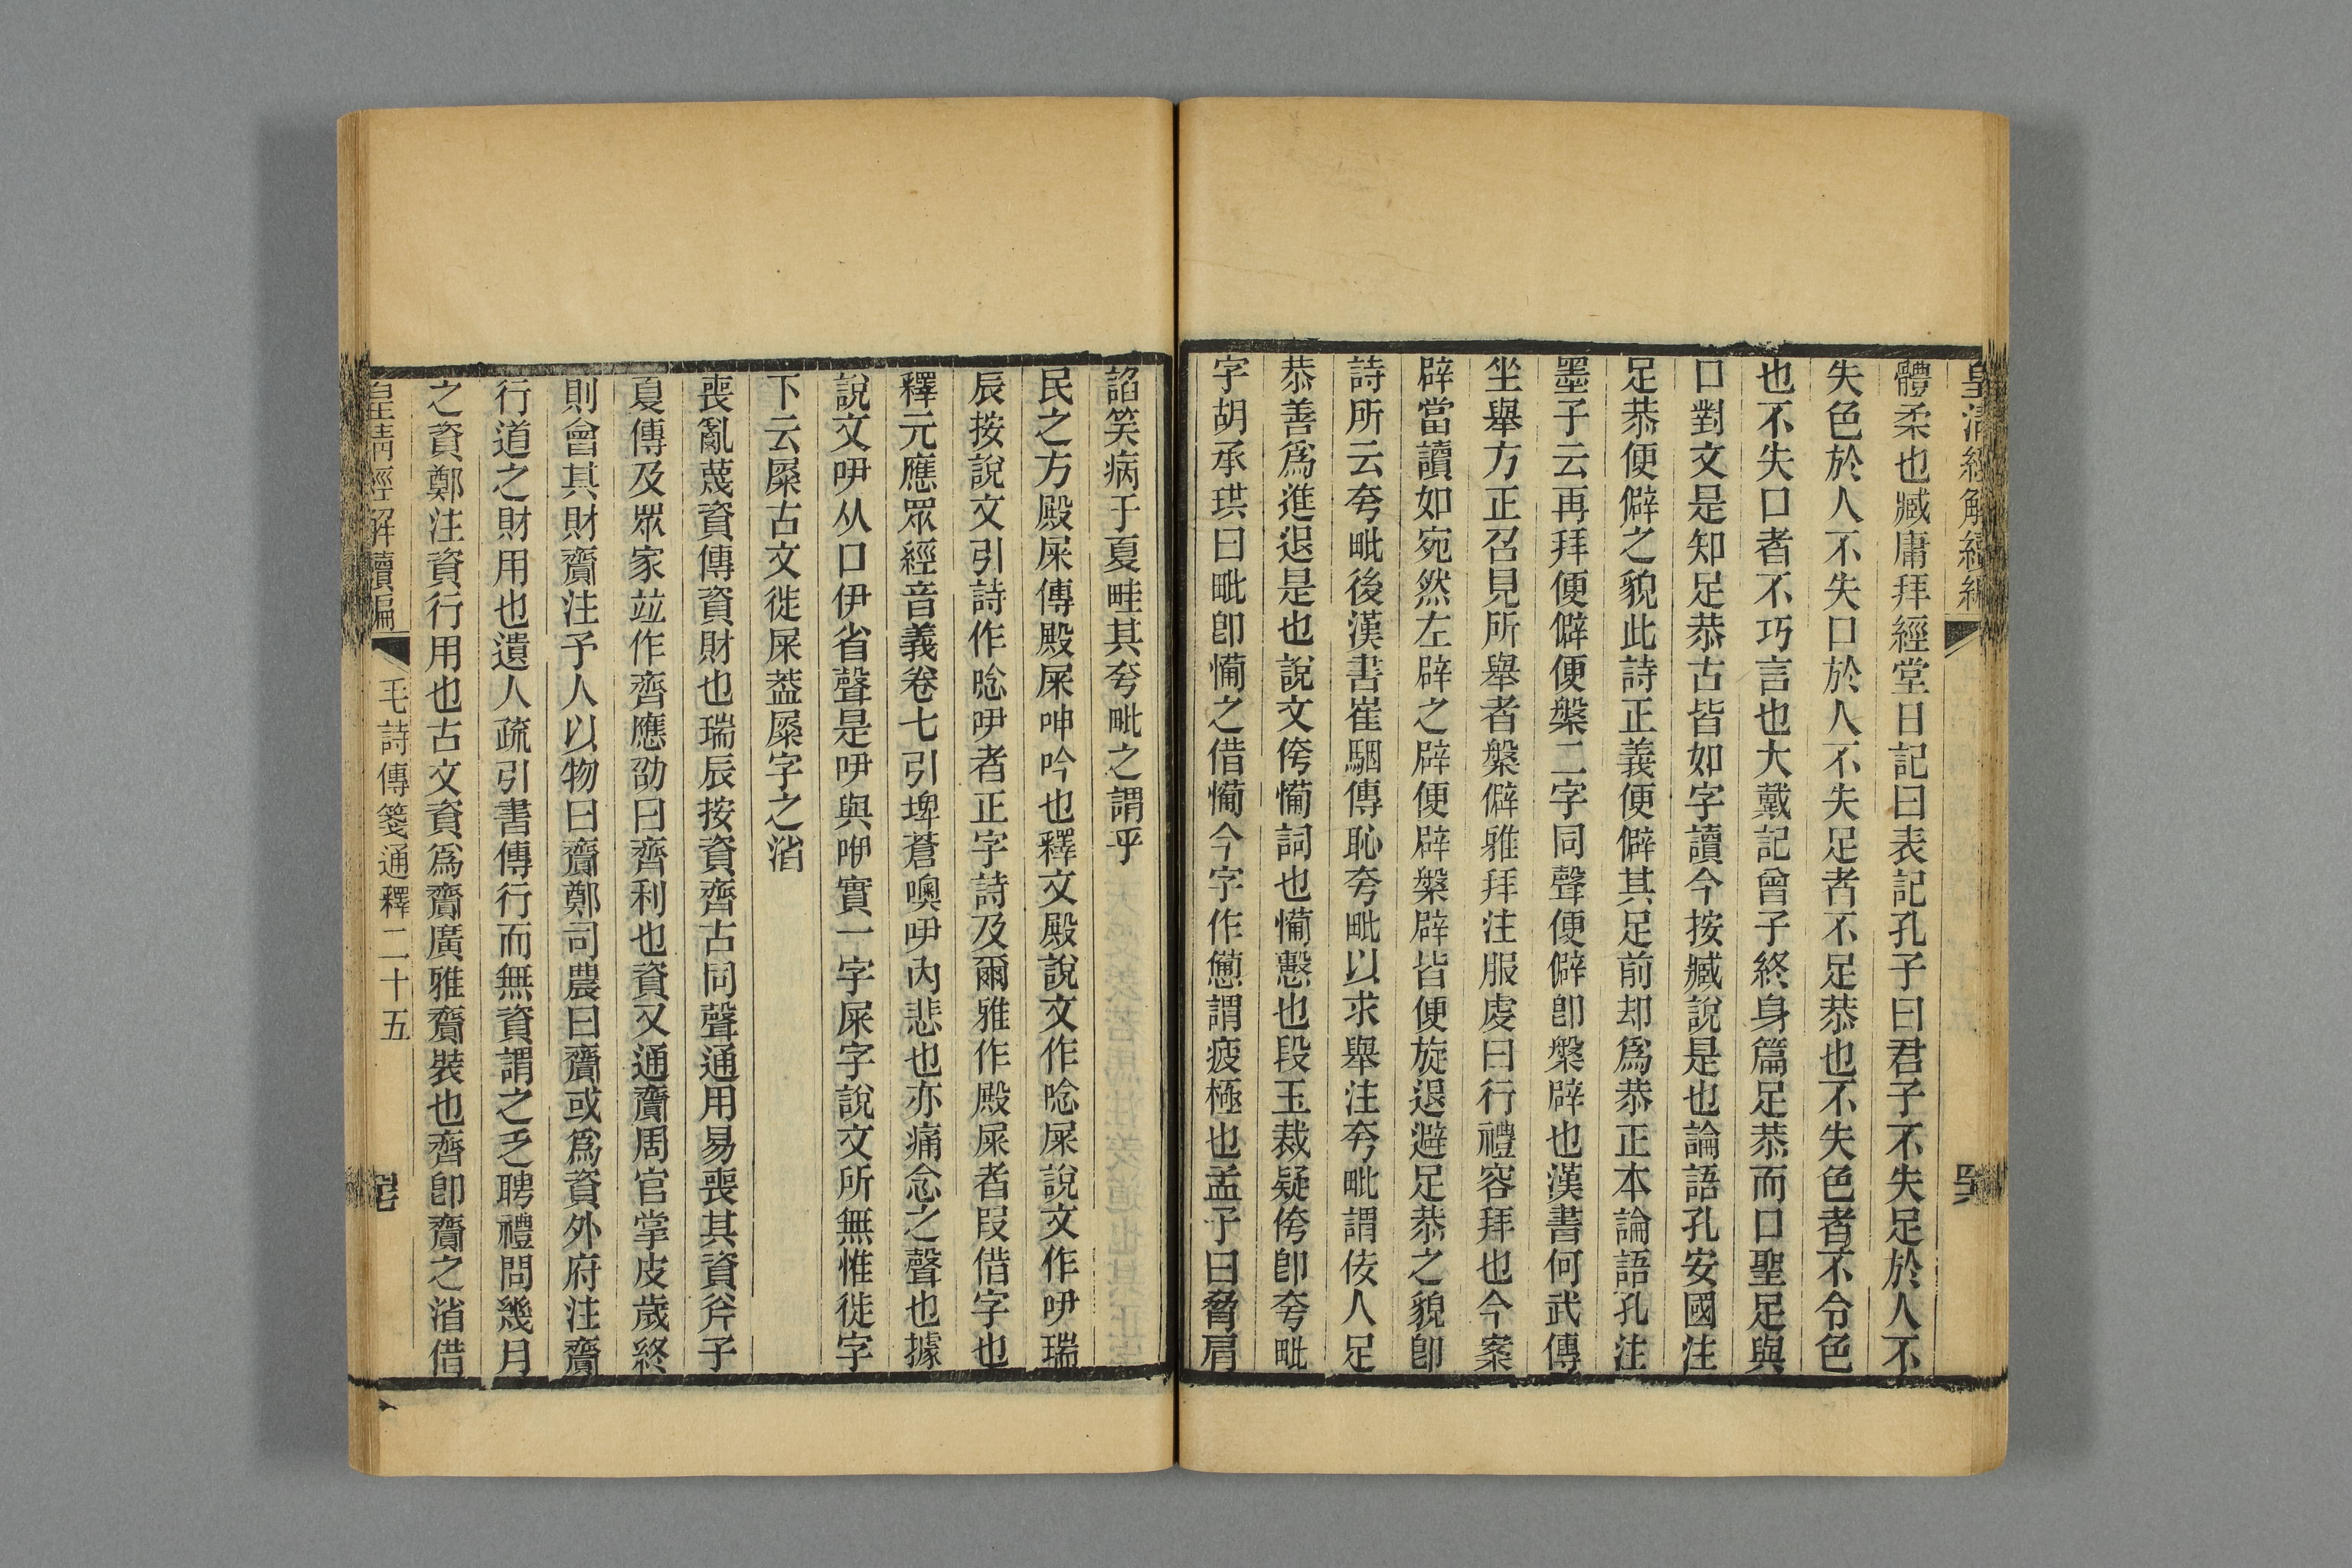 皇清經解續編
體柔也臧庸拜經堂日記曰表記孔子曰君子不失足於人不
失色於人不失口於人不失足者不足恭也不失色者不令色
也不失口者不巧言也大戴記曾子終身篇足恭而口聖足與
口對文是知足恭古皆如字讀今按臧說是也論語孔安國注
足恭便僻之貌此詩正義便僻其足前却爲恭正本論語孔注
墨子云再拜便僻便槃二字同聲便僻卽槃辟也漢書何武傳
坐舉方正召見所舉者槃僻雅拜注服虔曰行禮容拜也今案
辟當讀如宛然左辟之辟便辟槃辟皆便旋退避足恭之貌卽
詩所云夸毗後漢書崔駰傳恥夸毗以求舉注夸毗謂佞人足
恭善爲進退是也說文侉㦻詞也㦻憊也段玉裁疑侉卽夸毗
字胡承珙曰毗卽㦻之借㦻今字作憊謂疲極也孟子曰脅肩
諂笑病于夏畦其夸毗之謂乎
民之方殿屎傳殿屎呻吟也釋文殿說文作唸屎說文作吚瑞
辰按說文引詩作唸吚者正字詩及爾雅作殿屎者叚借字也
釋元應眾經音義卷七引埤蒼噢吚內悲也亦痛念之聲也據
說文吚从口伊省聲是吚與咿實一字屎字說文所無惟徙字
下云𡲴古文徙屎葢𡲴字之消
喪亂蔑資傳資財也瑞辰按資齊古同聲通用易喪其資斧子
夏傳及眾家竝作齊應劭曰齊利也資又通齎周官掌皮歲終
則會其財齎注予人以物曰齎鄭司農曰齎或爲資外府注齎
行道之財用也遺人疏引書傳行而無資謂之乏聘禮問幾月
之資鄭注資行用也古文資爲齎廣雅齎裝也齊卽齎之消借
皇清經解續編
毛詩傳箋通釋二十五